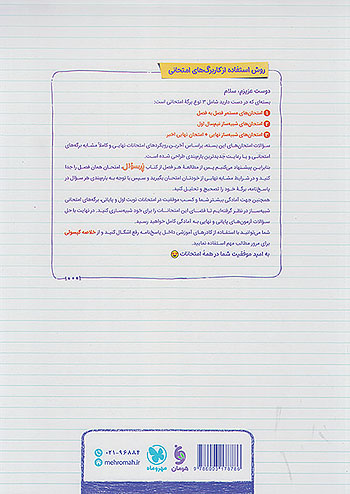 روش استفاده از کاربرگ‌های امتحانی
دوست عزیزم، سلام
بسته‌ای که در دست دارید شامل ۳ نوع برگهٔ امتحانی است:
۱ امتحان‌های مستمر فصل به فصل
۲ امتحان‌های شبیه‌ساز نیم‌سال اول
۳ امتحان‌های شبیه‌ساز نهایی + امتحان نهایی اخیر
سؤالات امتحان‌های این بسته، براساس آخرین رویکردهای امتحانات نهایی و کاملاً مشابه برگه‌های
امتحانی و با رعایت جدیدترین بارم‌بندی طراحی شده است.
بنابراین پیشنهاد می‌کنیم پس از مطالعهٔ هر فصل از کتاب پرسؤال، امتحان همان فصل را جدا
کنید و در شرایط مشابه نهایی از خودتان امتحان بگیرید و سپس با توجه به بارم‌بندی هر سؤال در
پاسخ‌نامه، برگهٔ خود را تصحیح و تحلیل کنید.
همچنین جهت آمادگی بیشتر شما و کسب موفقیت در امتحانات نوبت اول و پایانی، برگه‌های امتحانی
شبیه‌ساز در نظر گرفته‌ایم تا فضای این امتحانات را برای خود شبیه‌سازی کنید. در نهایت با حل
سؤالات آزمون‌های پایانی و نهایی به آمادگی کامل خواهید رسید.
شما می‌توانید با استفاده از کادرهای آموزشی داخل پاسخ‌نامه رفع اشکال کنید و از خلاصه کپسولی
برای مرور مطالب مهم استفاده نمایید.
به امید موفقیت شما در همهٔ امتحانات
۰۲۱-۹۶۸۸۴
mehromah.ir
مهروماه
هومان